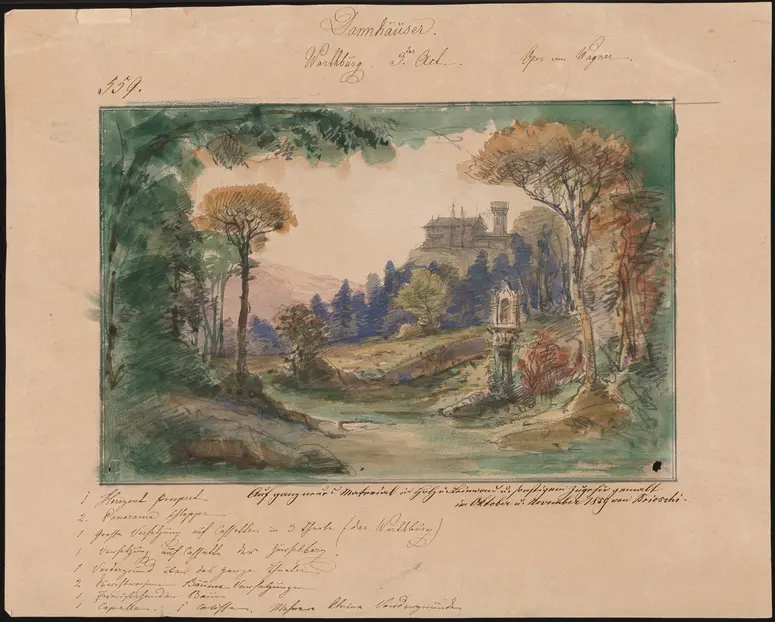 Tannhäuser.
Wartburg. 3ter Act. Oper von Wagner.
559.
Auf ganz neues Material in Holz u. Leinwand u. sonstigem Zugehör gemalt
im Oktober u. November 1889 von Brioschi.
1 Horizont Prospect
2. Panorama Schlepper
1 Grosse Versetzung auf Cassetten in 3 Theile (das Wartburg)
1 Versetzung auf Cassette der Hörselberg.
1 Vordergrund über das ganze Theater
2 Bäume Versetzungen
1 Freistehender Baum
1 Capelle. 1 Coulisse. Mehrere kleine Vordergründe